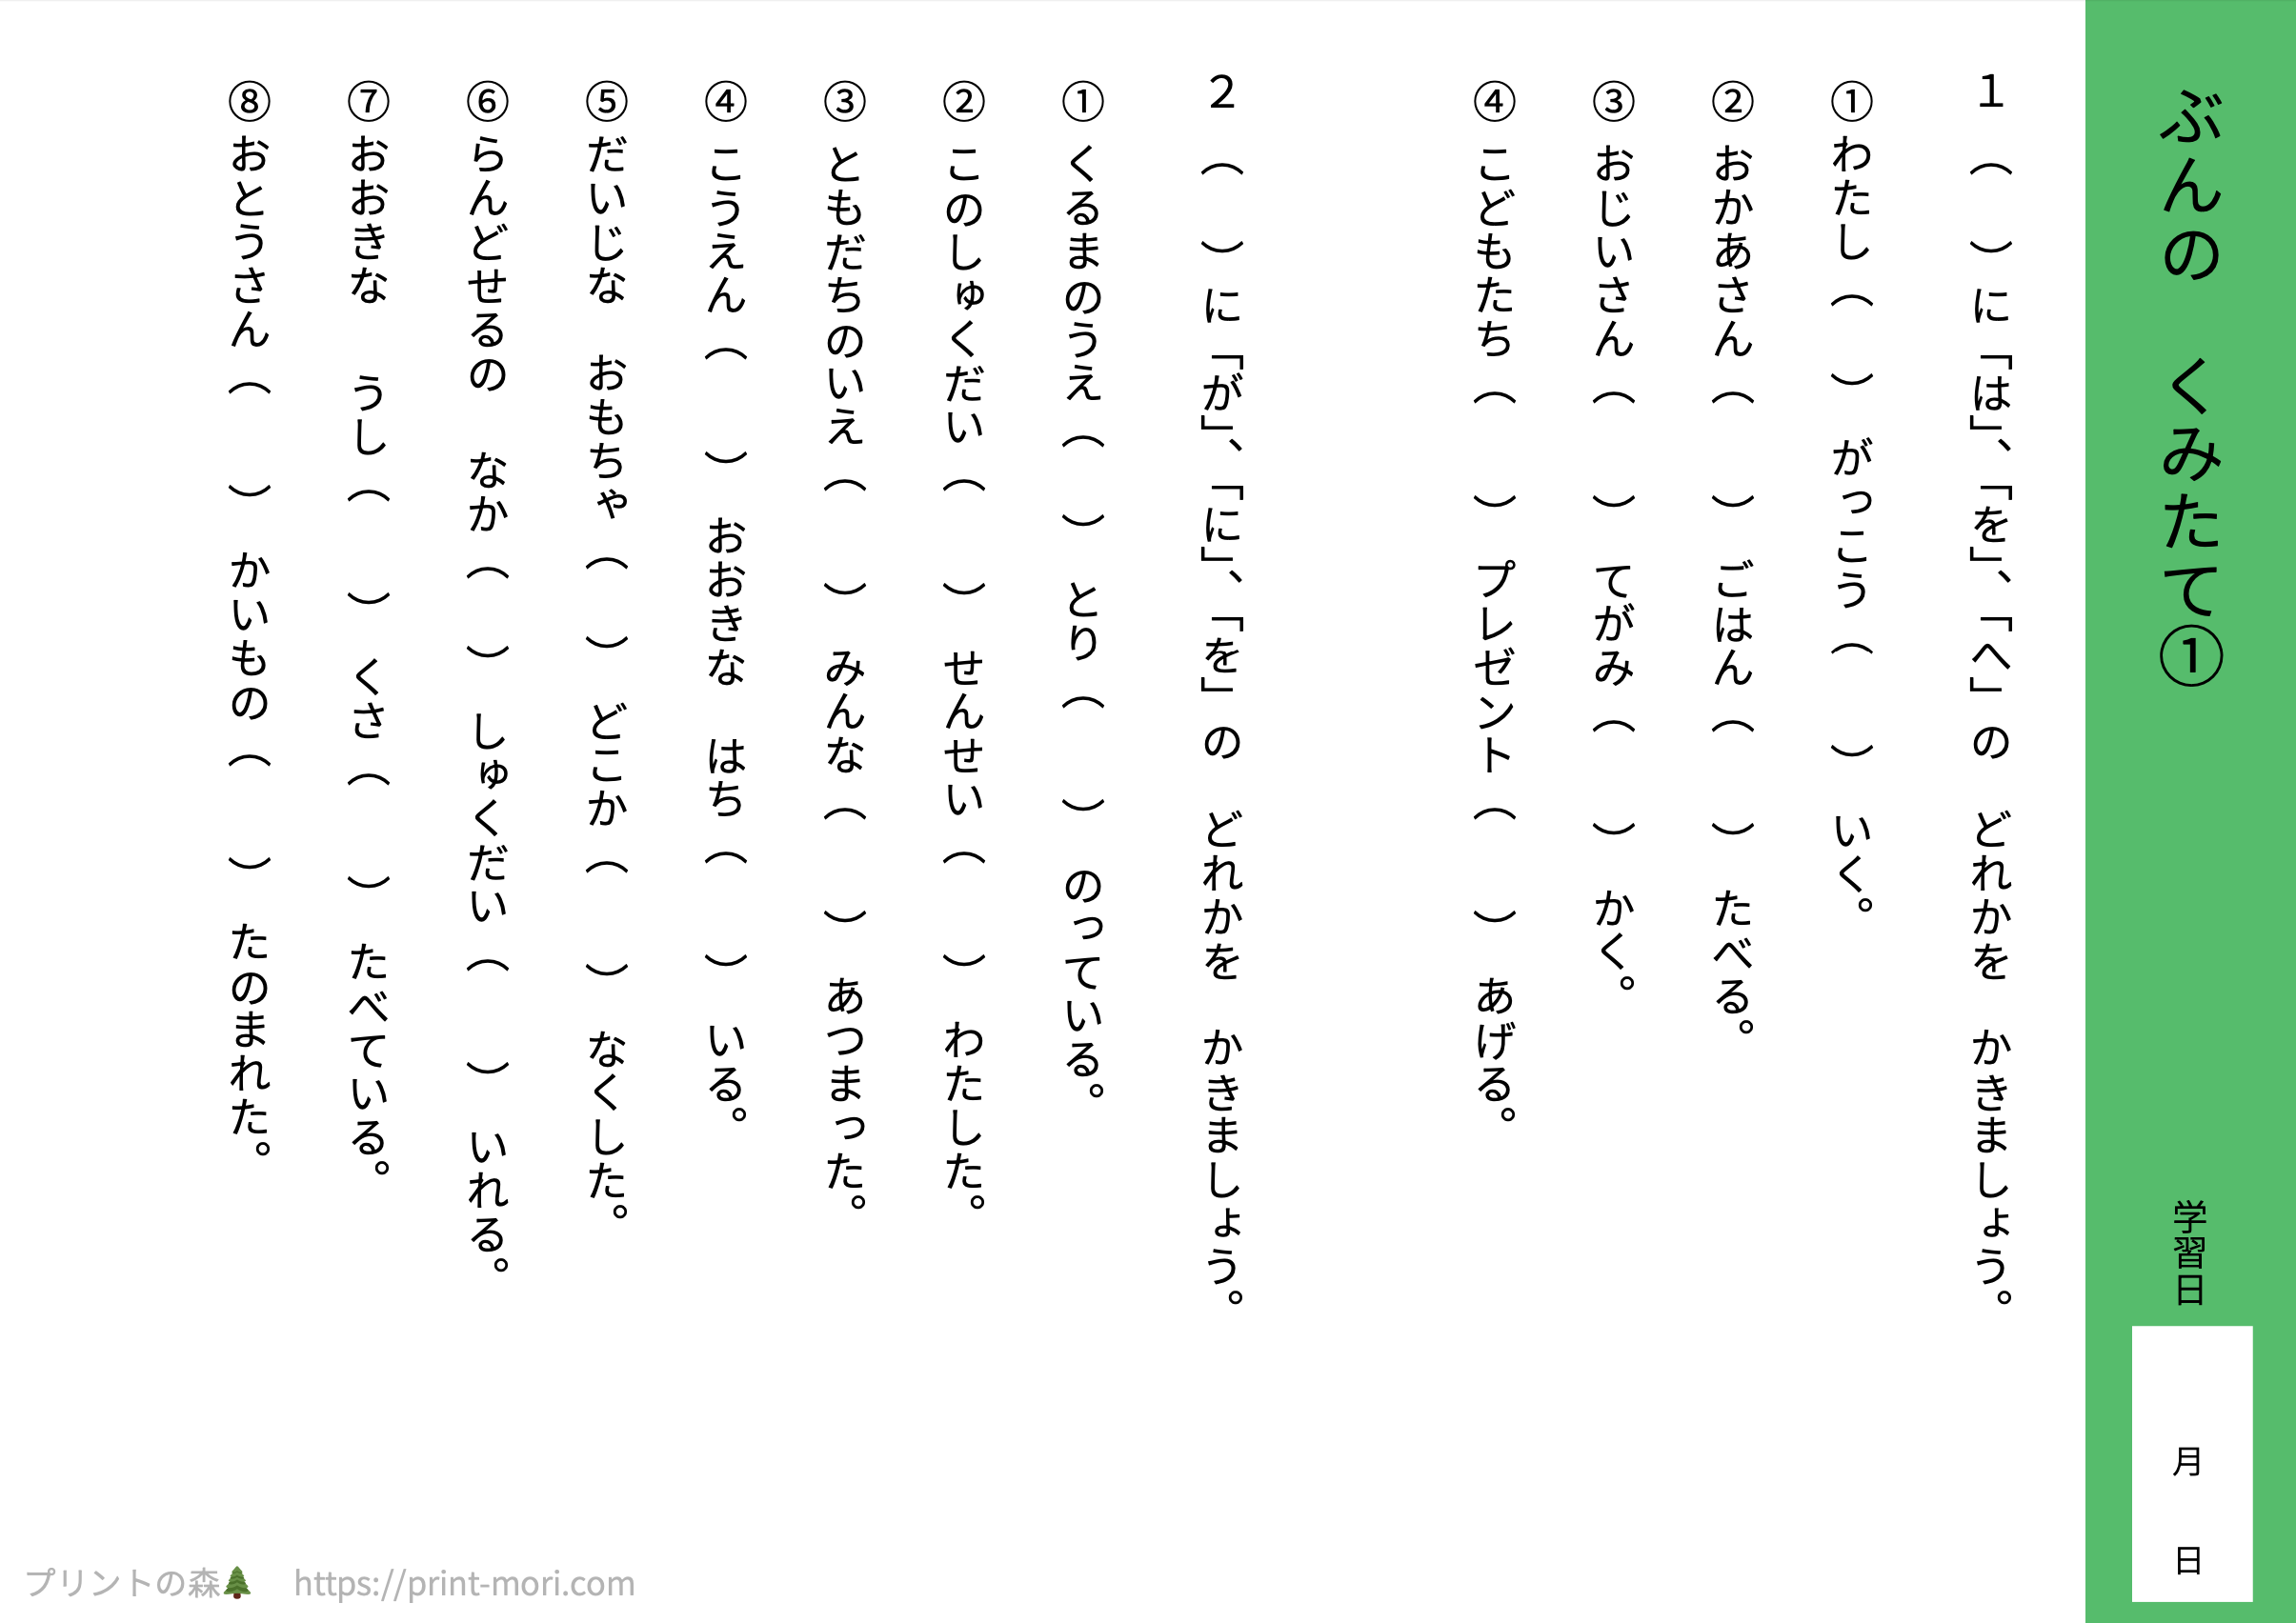 ぶんの　くみたて①
学習日
月　日
1　（　）に「は」、「を」、「へ」の　どれかを　かきましょう。
①わたし（　）　がっこう（　）　いく。
②おかあさん（　）　ごはん（　）　たべる。
③おじいさん（　）　てがみ（　）　かく。
④こどもたち（　）　プレゼント（　）　あげる。
2　（　）に「が」、「に」、「を」の　どれかを　かきましょう。
①くるまのうえ（　）　とり（　）　のっている。
②このしゅくだい（　）　せんせい（　）　わたした。
③ともだちのいえ（　）　みんな（　）　あつまった。
④こうえん（　）　おおきな　はち（　）　いる。
⑤だいじな　おもちゃ（　）　どこか（　）　なくした。
⑥らんどせるの　なか（　）　しゅくだい（　）　いれる。
⑦おおきな　うし（　）　くさ（　）　たべている。
⑧おとうさん（　）　かいもの（　）　たのまれた。
プリントの森　https://print-mori.com